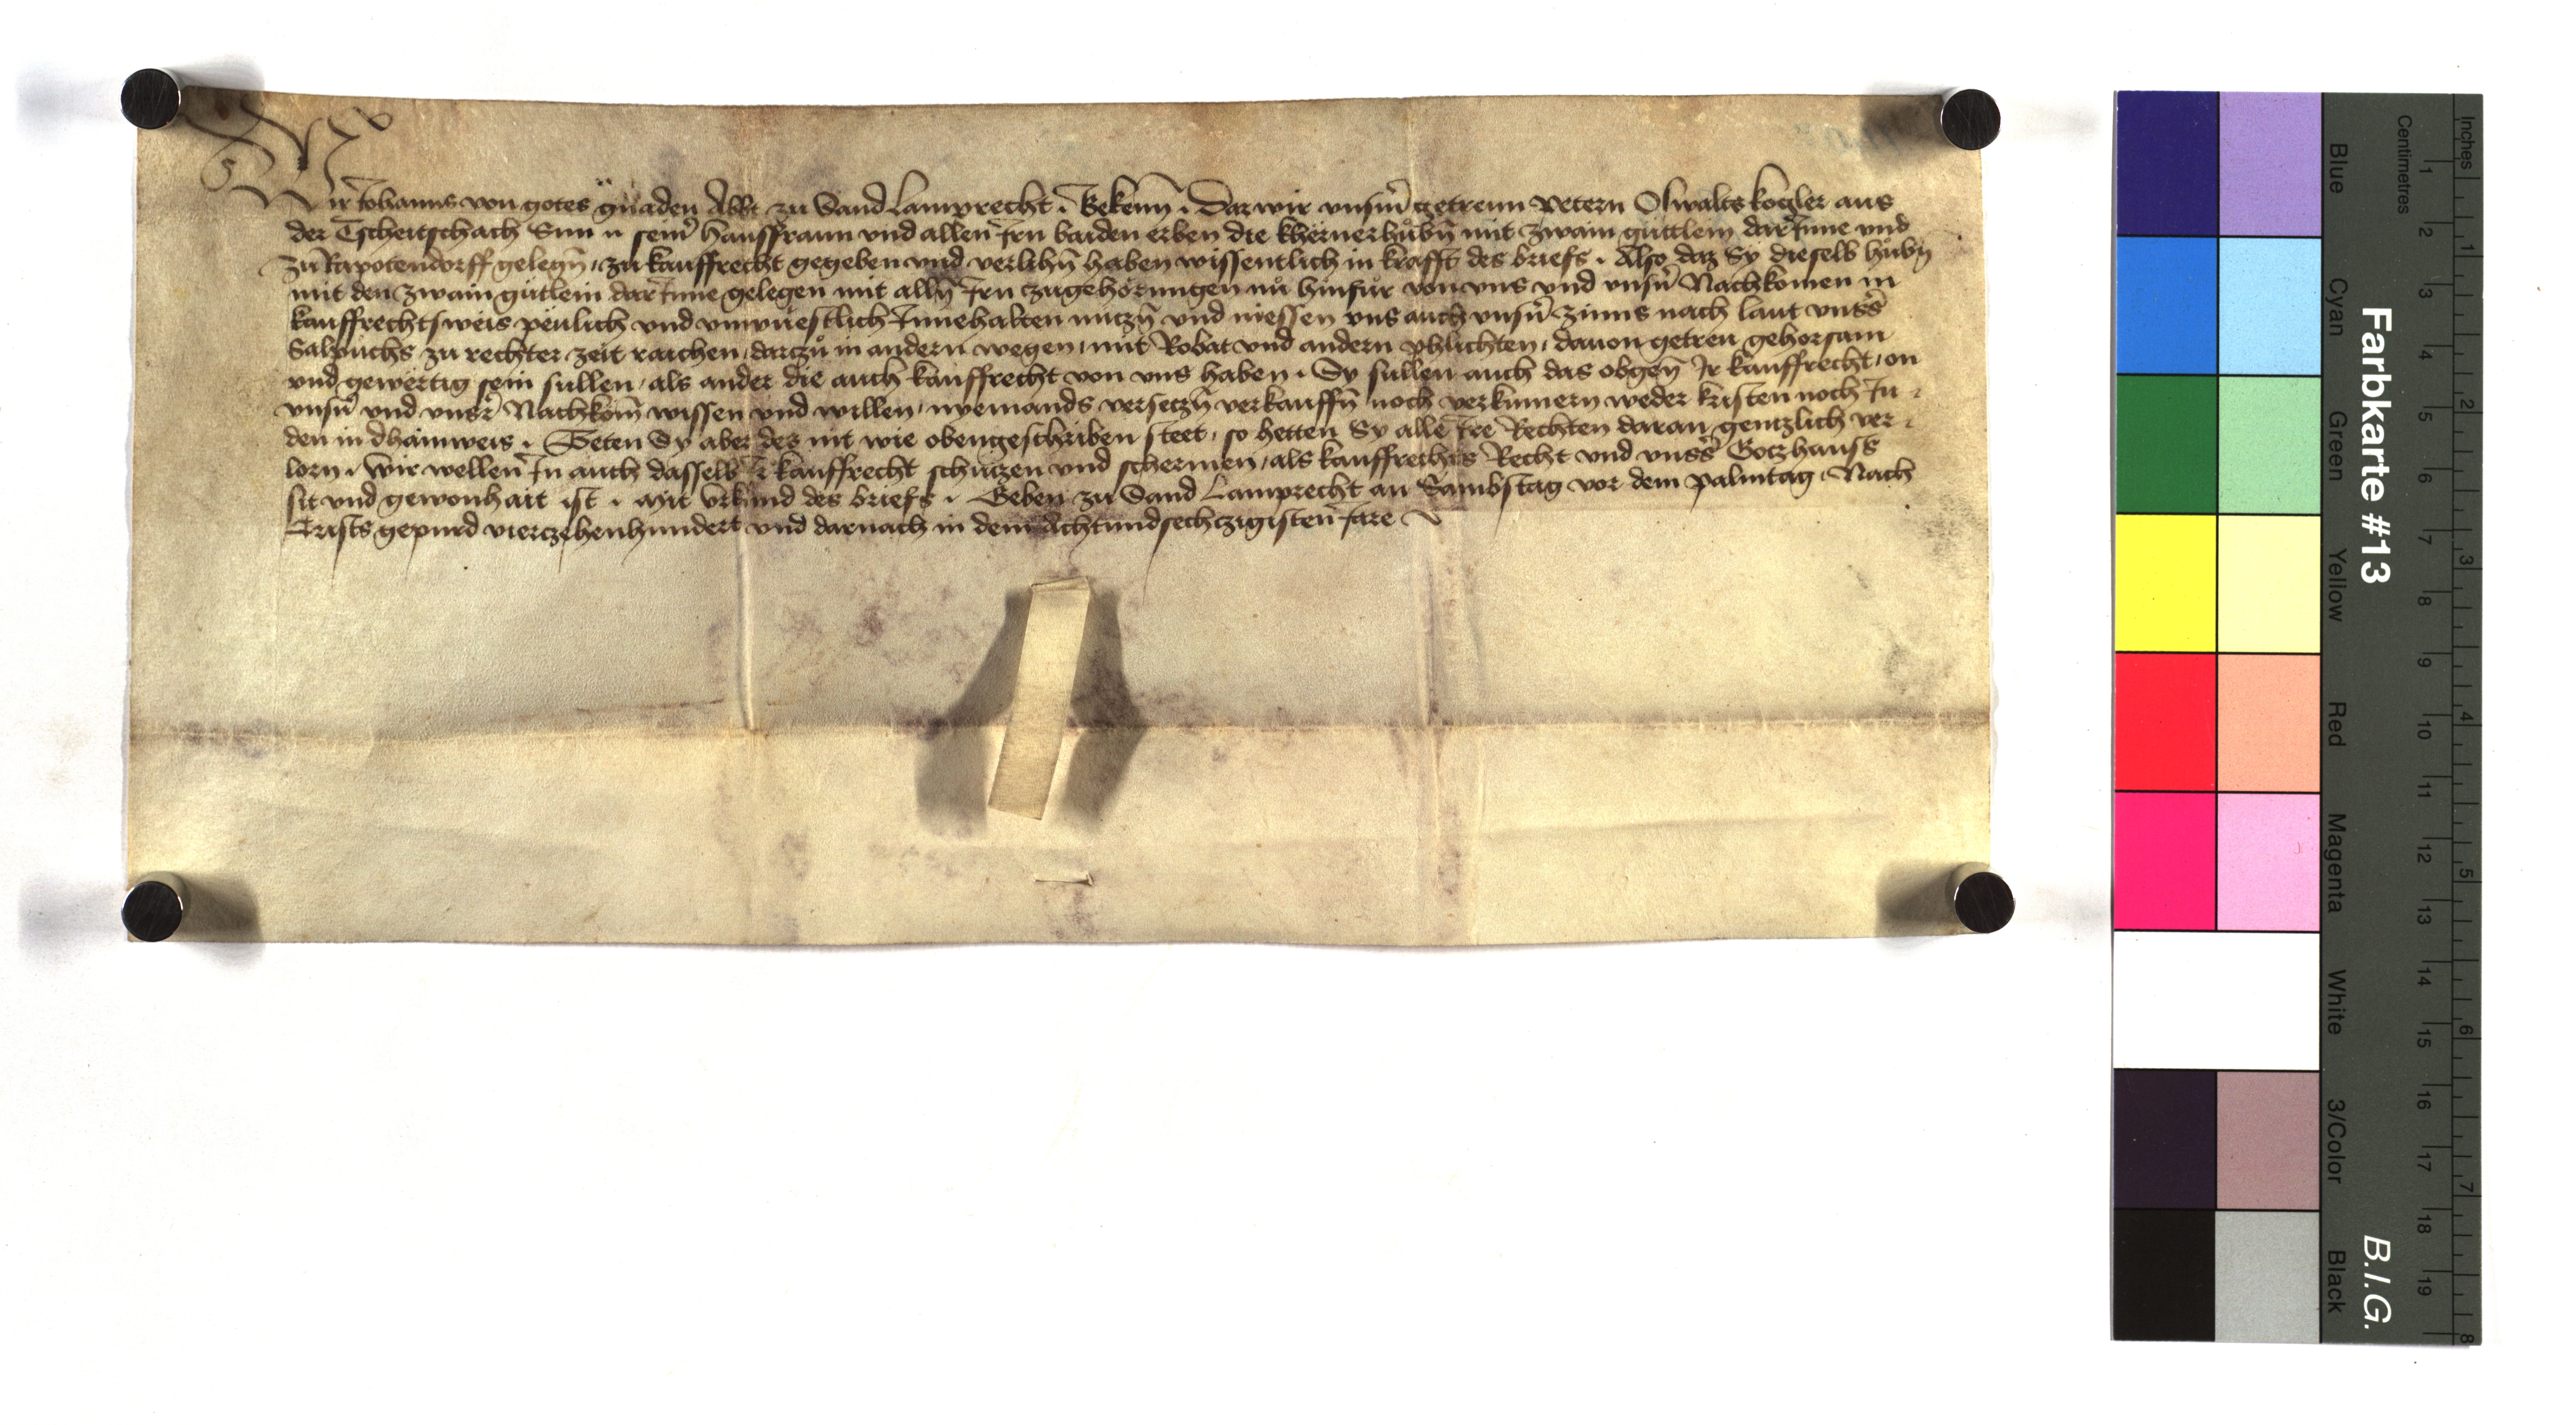 Wir Johanns von gotes gnaden Abbt zu Sand Lamprecht. Bekenn. Daz wir vnserm getrewn Petern Oswalts kogler aus
der Tscheitschach Sun n seiner hausffrawn vnd allen Iren baiden erben die khernerhůbn mit zwain gůttlein dar Inne vnd
zu Rapotendorff gelegn, zu kauffrecht gegeben vnd verlihn haben wissentlich in krafft des briefs. Also daz Sy dieselb hůbn
mit den zwain gůtlein dar Inne gelegen mit alln Irn zugehörungen nů hinfůr von vns vnd vnsern Nachkomen in
kauffrechtsweis peulich vnd vnwuestlich Innehalten nutzn vnd niessen vns auch vnsern zinns nach laut vnsers
Salpuchs zu rechter zeit raichen, darczů in andern wegen, mit Robat vnd andern phlichten, dauon getreu gehorsam
vnd gewërtig sein sullen, als ander die auch kauffrecht von vns haben. Sy sullen auch das obgen Ir kauffrecht, on
vnsern vnd vnser Nachkom wissen vnd willen, nyemands versetzn verkauffn noch verkůmern weder kristen noch Ju-
den in dhainweis. Teten Sy aber des nit wie obengeschriben steet, so hetten Sy alle Ire Rechten daran gentzlich ver-
lorn. Wir wellen In auch dasselb Ir kauffrecht schützen vnd schermen, als kauffrechts Recht vnd vnsers Gotzhauss
sit vnd gewonhait ist. Mit Vrkund des briefs. Geben zu Sand Lamprecht an Sambstag vor dem Palmtag, Nach
Crists gepurd vierczehenhundert vnd darnach in dem Achtundsechczigisten Jare
Farbkarte #13
B.I.G.
Blue Cyan Green Yellow Red Magenta White 3/Color Black
Centimetres 1 2 3 4 5 6 7 8 9 10 11 12 13 14 15 16 17 18 19
Inches 1 2 3 4 5 6 7 8